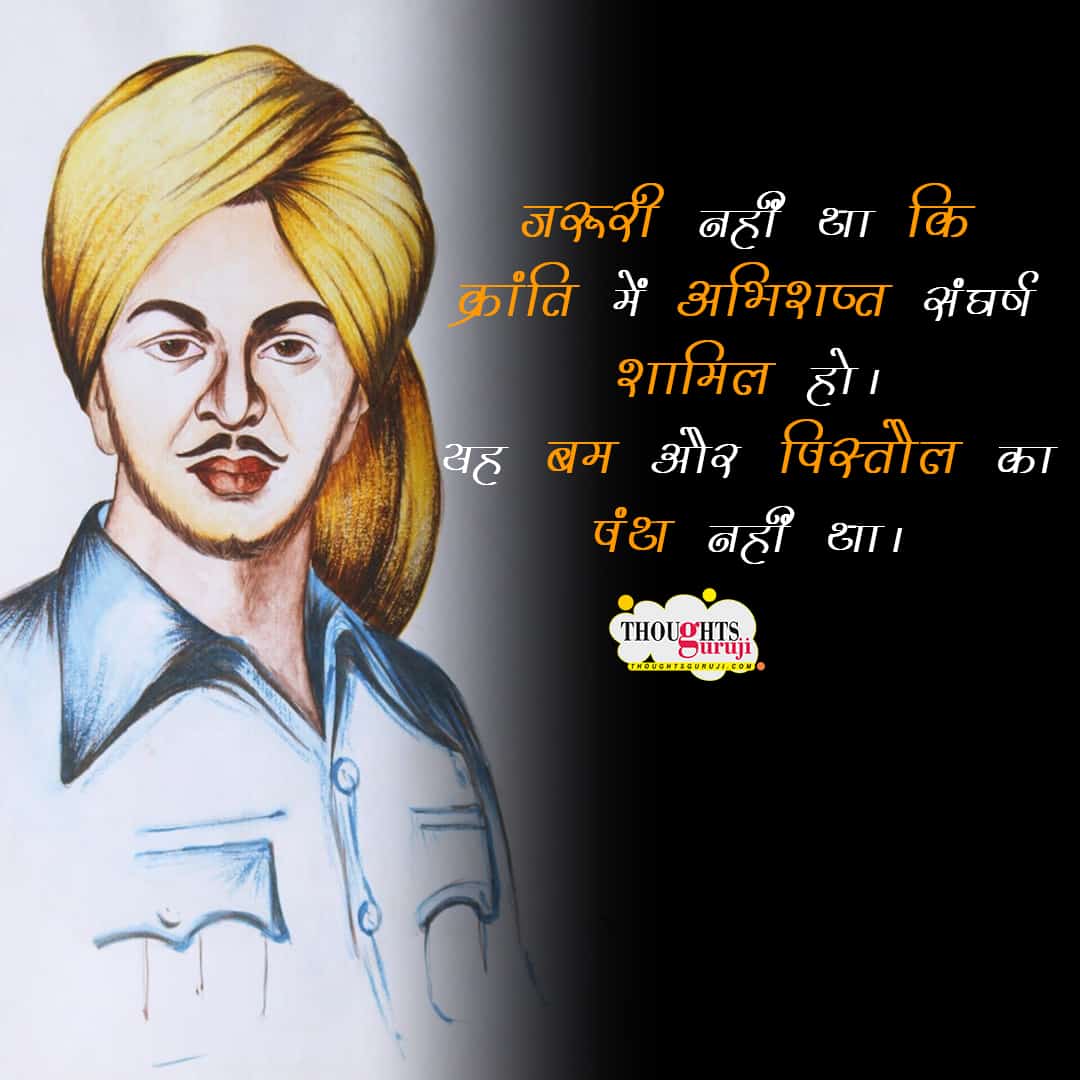 जरूरी नहीं था कि
क्रांति में अभिशप्त संघर्ष
शामिल हो।
यह बम और पिस्तौल का
पंथ नहीं था।
THOUGHTS
guruji
THOUGHTSGURUJI.COM